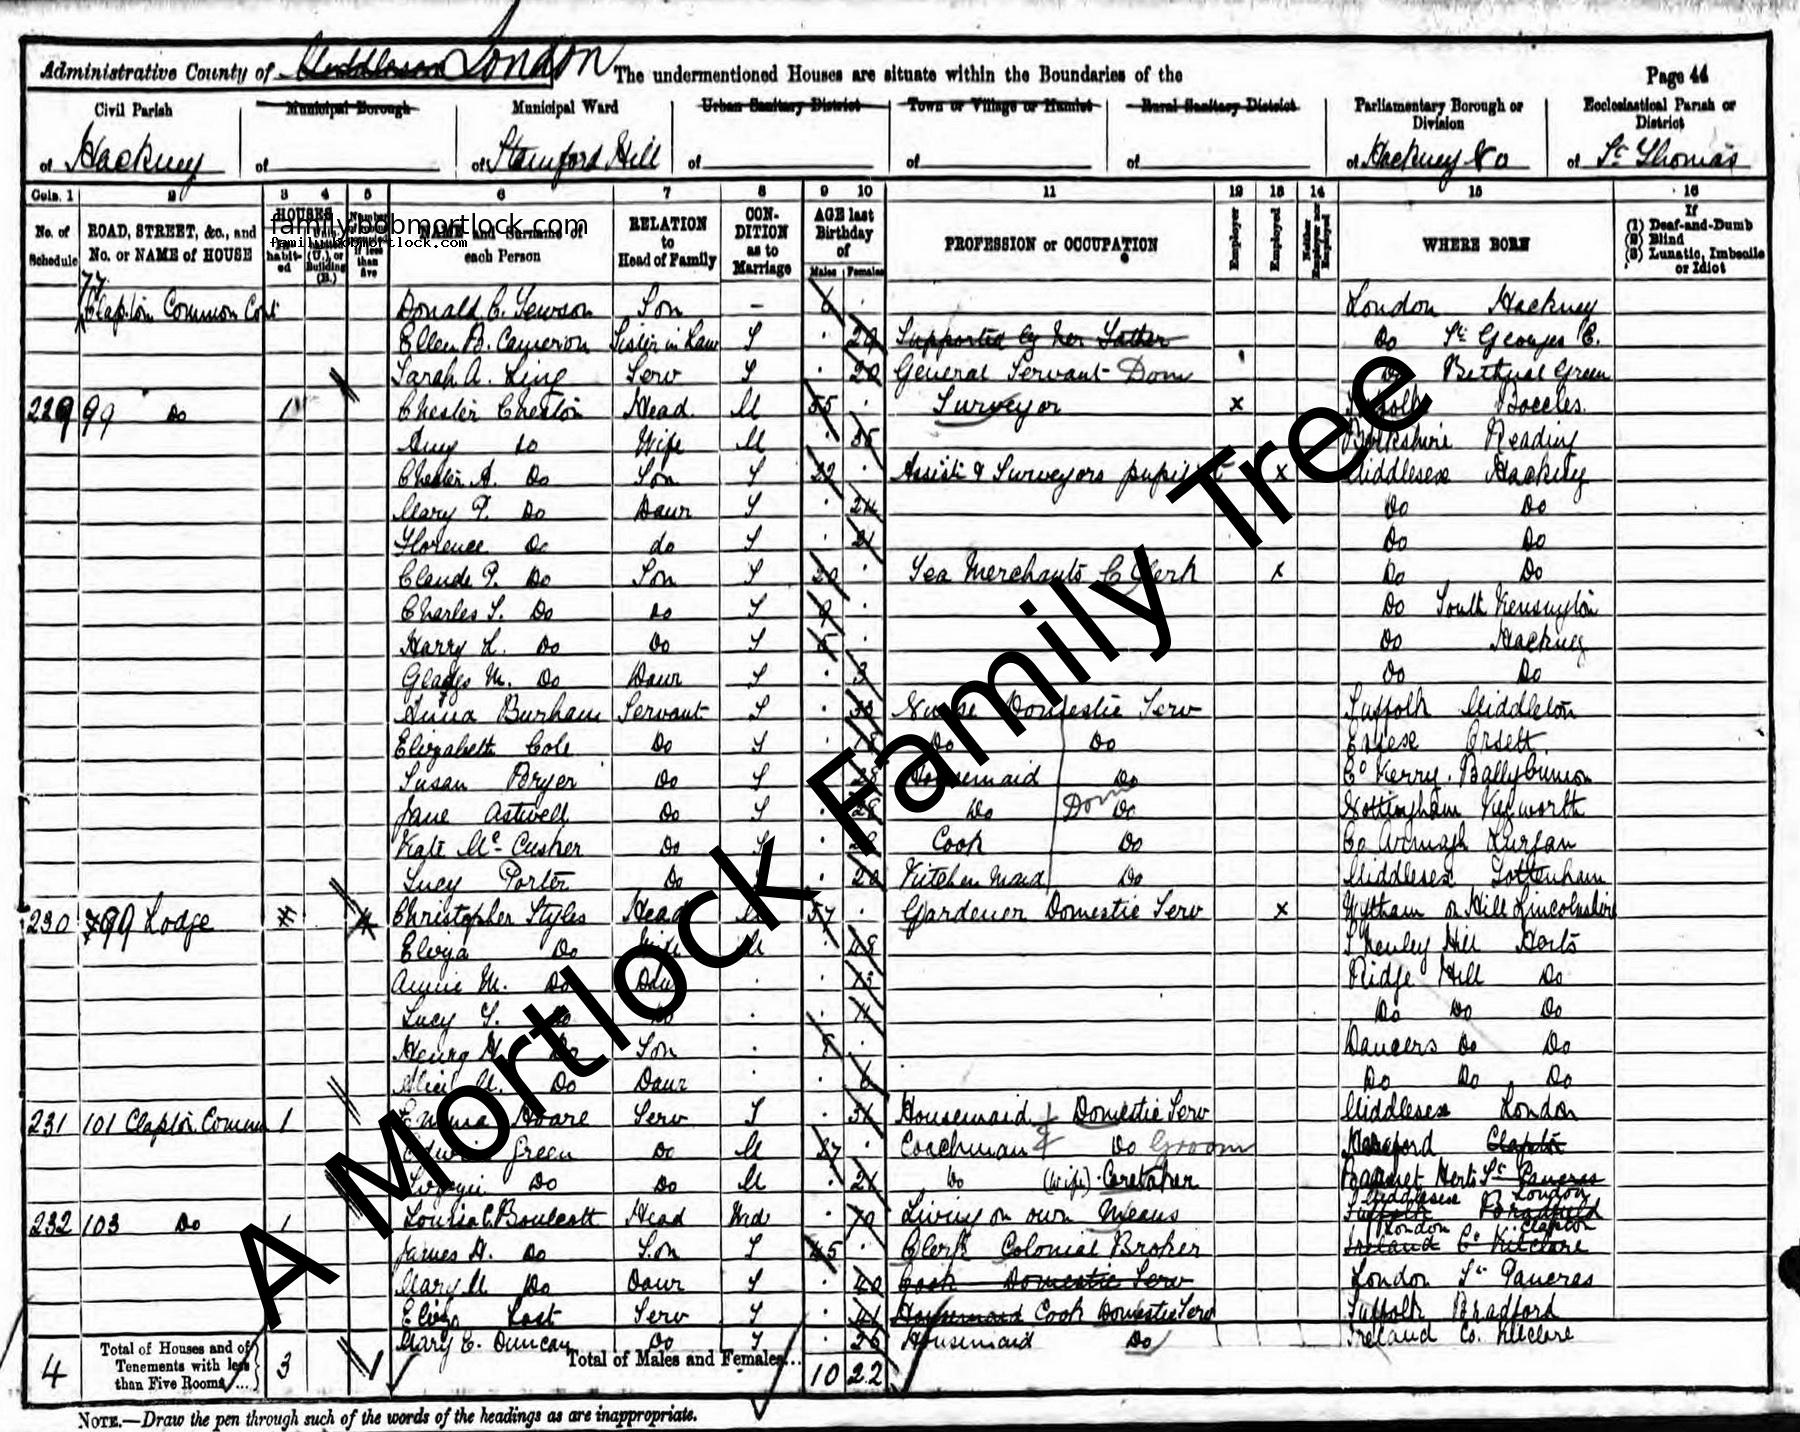 Administrative County of Middlesex London The undermentioned Houses are situate within the Boundaries of the Page 44
Civil Parish Municipal Borough Municipal Ward Urban Sanitary District Town or Village or Hamlet Rural Sanitary District Parliamentary Borough or Division Ecclesiastical Parish or District
of Hackney of of Stamford Hill of of of of Hackney No of St Thomas
Cols. 1 2 3 4 5 6 7 8 9 10 11 12 13 14 15 16
No. of Schedule ROAD, STREET, &c., and No. or NAME of HOUSE HOUSES Inhabited Uninhabited (U.), or Building (B.) Number if less than five NAME and Surname of each Person RELATION to Head of Family CONDITION as to Marriage AGE last Birthday of Males Females PROFESSION or OCCUPATION Employer Employed Neither Employer nor Employed WHERE BORN If (1) Deaf-and-Dumb (2) Blind (3) Lunatic, Imbecile or Idiot
family.bobmortlock.com
family.bobmortlock.com
77 Clapton Common Cont Donald C. Sewson Son – 6 London Hackney
Ellen B. Cameron Sister in Law S 29 Supported by her Father Do St Georges E.
Sarah A. King Serv S 20 General Servant Dom Do Bethnal Green
229 99 Do 1 Chester Cheston Head M 55 Surveyor x Suffolk Beccles
Amy Do Wife M 35 Berkshire Reading
Chester A. Do Son S 22 Assist & Surveyors pupil x Middlesex Hackney
Mary P. Do Daur S 24 Do Do
Florence Do do S 21 Do Do
Claude P. Do Son S 20 Tea Merchants Clerk x Do Do
Charles S. Do Do S 9 Do South Kensington
Harry L. Do Do S 5 Do Hackney
Gladys M. Do Daur S 3 Do Do
Anna Burham Servant S Nurse Domestic Serv Suffolk Middleton
Elizabeth Cole Do S Do Do Essex Orsett
Susan Bryer Do S Housemaid Do Co Kerry. Ballybunion
Jane Astwell Do S 28 Do Dom Do Nottingham Kegworth
Kate McCusker Do S Cook Do Co Armagh Lurgan
Lucy Porter Do 20 Kitchen Maid Do Middlesex Tottenham
230 99 Lodge Christopher Styles Head M 57 Gardener Domestic Serv x Wytham on Hill Lincolnshire
Eliza Do Wife M 48 Shenley Hill Herts
Annie M. Do Daur 13 Ridge Hill Do
Lucy S. Do Do 11 Do Do Do
Henry H. Do Son Dancers Do Do
Alice M. Do Daur 6 Do Do Do
231 101 Clapton Common 1 Emma Hoare Serv S 31 Housemaid Domestic Serv Middlesex London
Edwin Green Do M 27 Coachman & Do Groom Hereford Clapton
Do Do M 21 Do (Wife) Caretaker Barnet Herts St Pancras
232 103 Do 1 Louisa C. Boulcott Head Wid 70 Living on own Means Suffolk Bradfield Middlesex London
James H. Do Son S 45 Clerk Colonial Broker Ireland Co Kilclare London Clapton
Mary M Do Daur S 40 Cook Domestic Serv London St Pancras
Eliza Last Serv S 41 Housemaid Cook Domestic Serv Suffolk Bradford
Mary E. Duncan Do S 26 Housemaid Do Ireland Co. Kilclare
4 Total of Houses and of Tenements with less than Five Rooms ... 3 Total of Males and Females... 10 22
NOTE.—Draw the pen through such of the words of the headings as are inappropriate.
A Mortlock Family Tree